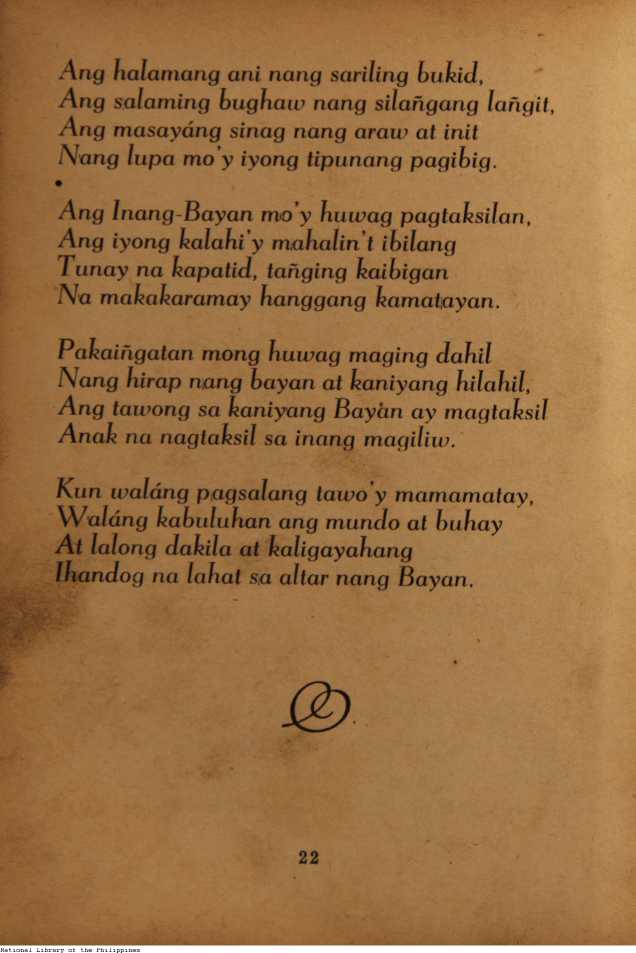 Ang halamang ani nang sariling bukid,
Ang salaming bughaw nang silañgang lañgit,
Ang masayáng sinag nang araw at init
Nang lupa mo'y iyong tipunang pagibig.
Ang Inang-Bayan mo'y huwag pagtaksilan,
Ang iyong kalahi'y mahalin't ibilang
Tunay na kapatid, tañging kaibigan
Na makakaramay hanggang kamatayan.
Pakaiñgatan mong huwag maging dahil
Nang hirap nang bayan at kaniyang hilahil,
Ang tawong sa kaniyang Bayan ay magtaksil
Anak na nagtaksil sa inang magiliw.
Kun waláng pagsalang tawo'y mamamatay,
Waláng kabuluhan ang mundo at buhay
At lalong dakila at kaligayahang
Ihandog na lahat sa altar nang Bayan.
22
National Library of the Philippines